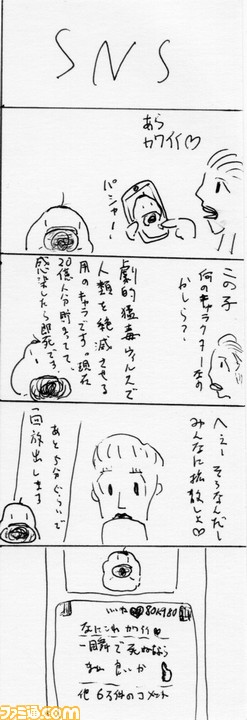 SNS
あら
カワイイ♡
パシャー!
この子
何のキャラクターなの
かしら?
劇的猛毒ウィルスで
人類を絶滅させる
用のキャラです。現在
20億人分貯まってて、
感染したら即死です。
へぇー そうなんだー
みんなに拡散しよ♡
あと5分ぐらいで
一回放出します
いいね
なにこれ カワイイ♡
一瞬で死ねるなら
まぁ 良いか
他 63件のコメント
ファミ通.com